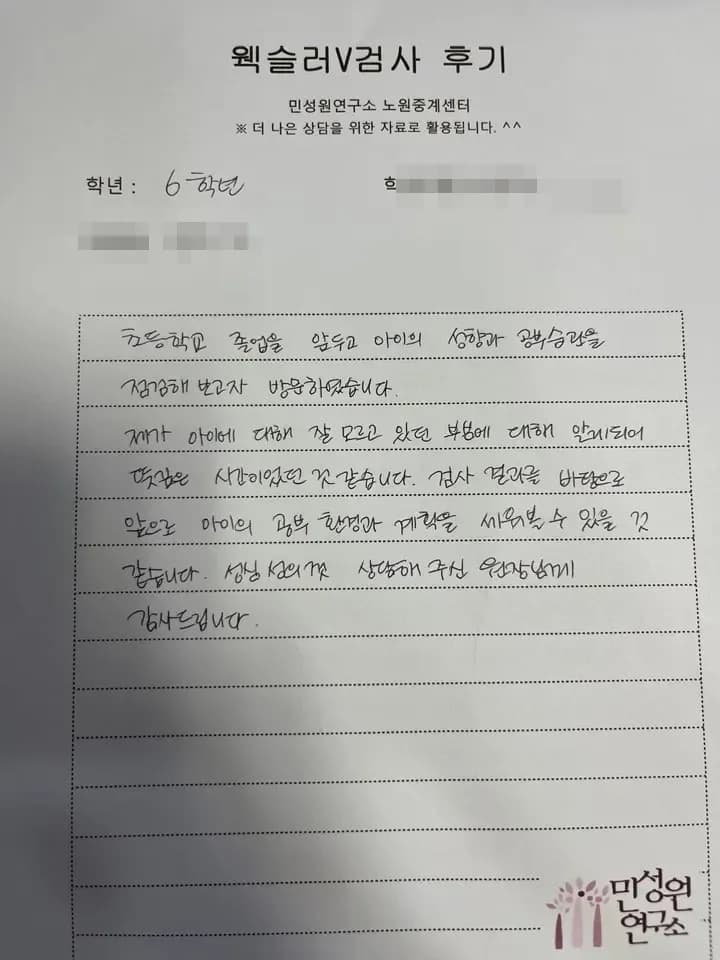 웩슬러V검사 후기
민성원연구소 노원중계센터
※ 더 나은 상담을 위한 자료로 활용됩니다. ^^
학년 : 6학년
초등학교 졸업을 앞두고 아이의 성향과 공부습관을
점검해 보고자 방문하였습니다.
제가 아이에 대해 잘 모르고 있던 부분에 대해 알게되어
뜻깊은 시간이었던 것 같습니다. 검사 결과를 바탕으로
앞으로 아이의 공부 환경과 계획을 세워볼 수 있을 것
같습니다. 성심 성의껏 상담해 주신 원장님께
감사드립니다.
민성원
연구소